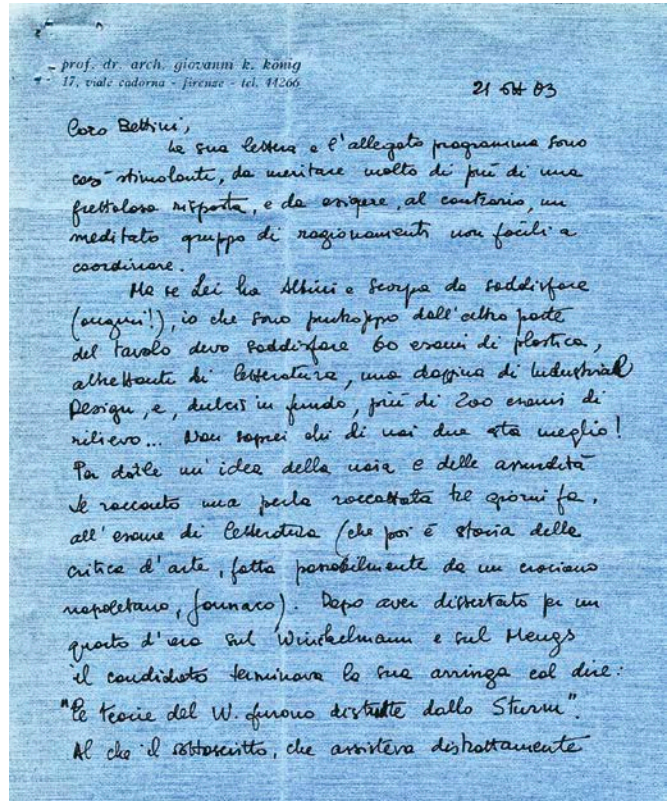 prof. dr. arch. giovanni k. könig
17, viale cadorna - firenze - tel. 44266
21 ott 63
Caro Bettini,
la sua lettera e l'allegato programma sono
così stimolante, da meritare molto di più di una
frettolosa risposta, e da esigere, al contrario, un
meditato gruppo di ragionamenti non facili a
coordinare.
Ma se Lei ha Albini e Scarpa da soddisfare
(auguri!), io che sono purtroppo dall'altra parte
del tavolo devo soddisfare 60 esami di plastica,
altrettante di letteratura, una doppina di Industrial
Design, e, dulcis in fundo, più di 200 esami di
rilievo... Non saprei chi di noi due sta meglio!
Per darle un'idea della noia e delle assurdità
le racconto una perla raccattata tre giorni fa,
all'esame di letteratura (che poi è storia della
critica d'arte, fatta possibilmente da un crociano
napoletano,). Dopo aver dissertato per un
quarto d'ora sul Winckelmann e sul Mengs
il candidato terminava la sua arringa col dire:
"le teorie del W. furono distrutte dallo Sturm".
Al che il sottoscritto, che assisteva distrattamente